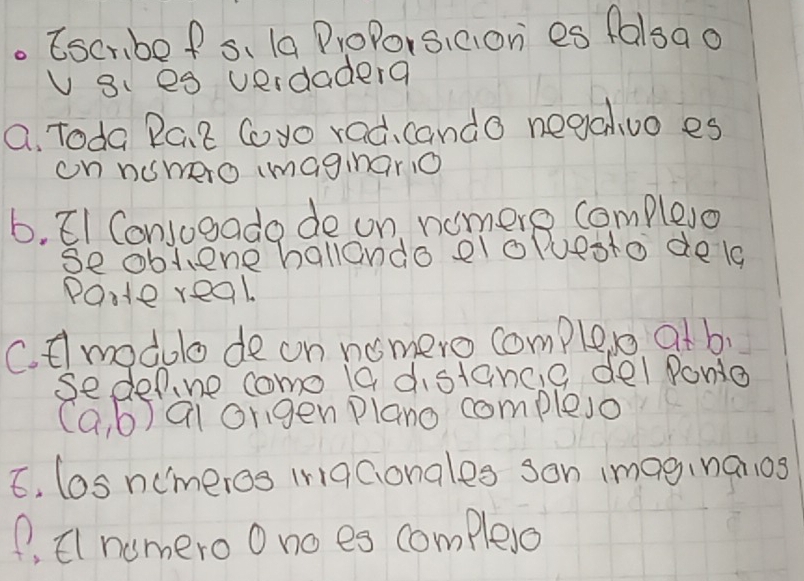 • Escribe f si la Proporsición es falsa o
V si es verdadera
a. Toda Raiz Cuyo radicando negativo es
un número imaginario
b. El Conjugado de un numero complejo
se obtiene hallando el opuesto de la
Parte real.
C. El modulo de un número complejo a+bi
se define como la distancia del Punto
(a,b) al origen Plano complejo
E. los números irracionales son imaginarios
f. El numero 0 no es complejo